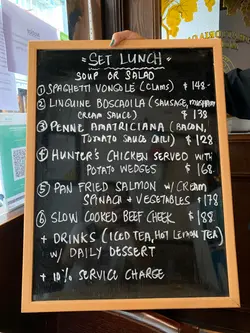 SET LUNCH
SOUP OR SALAD
① SPAGHETTI VONGOLE (CLAMS) $148
② LINGUINE BOSCAOILA (SAUSAGE, MUSHROOM
CREAM SAUCE) $138
③ PENNE AMATRICIANA (BACON,
TOMATO SAUCE CHILI) $128
④ HUNTER'S CHICKEN SERVED WITH
POTATO WEDGES $168
⑤ PAN FRIED SALMON w/ CREAM
SPINACH & VEGETABLES $178
⑥ SLOW COOKED BEEF CHEEK $188
+ DRINKS (ICED TEA, HOT LEMON TEA)
w/ DAILY DESSERT
+ 10% SERVICE CHARGE